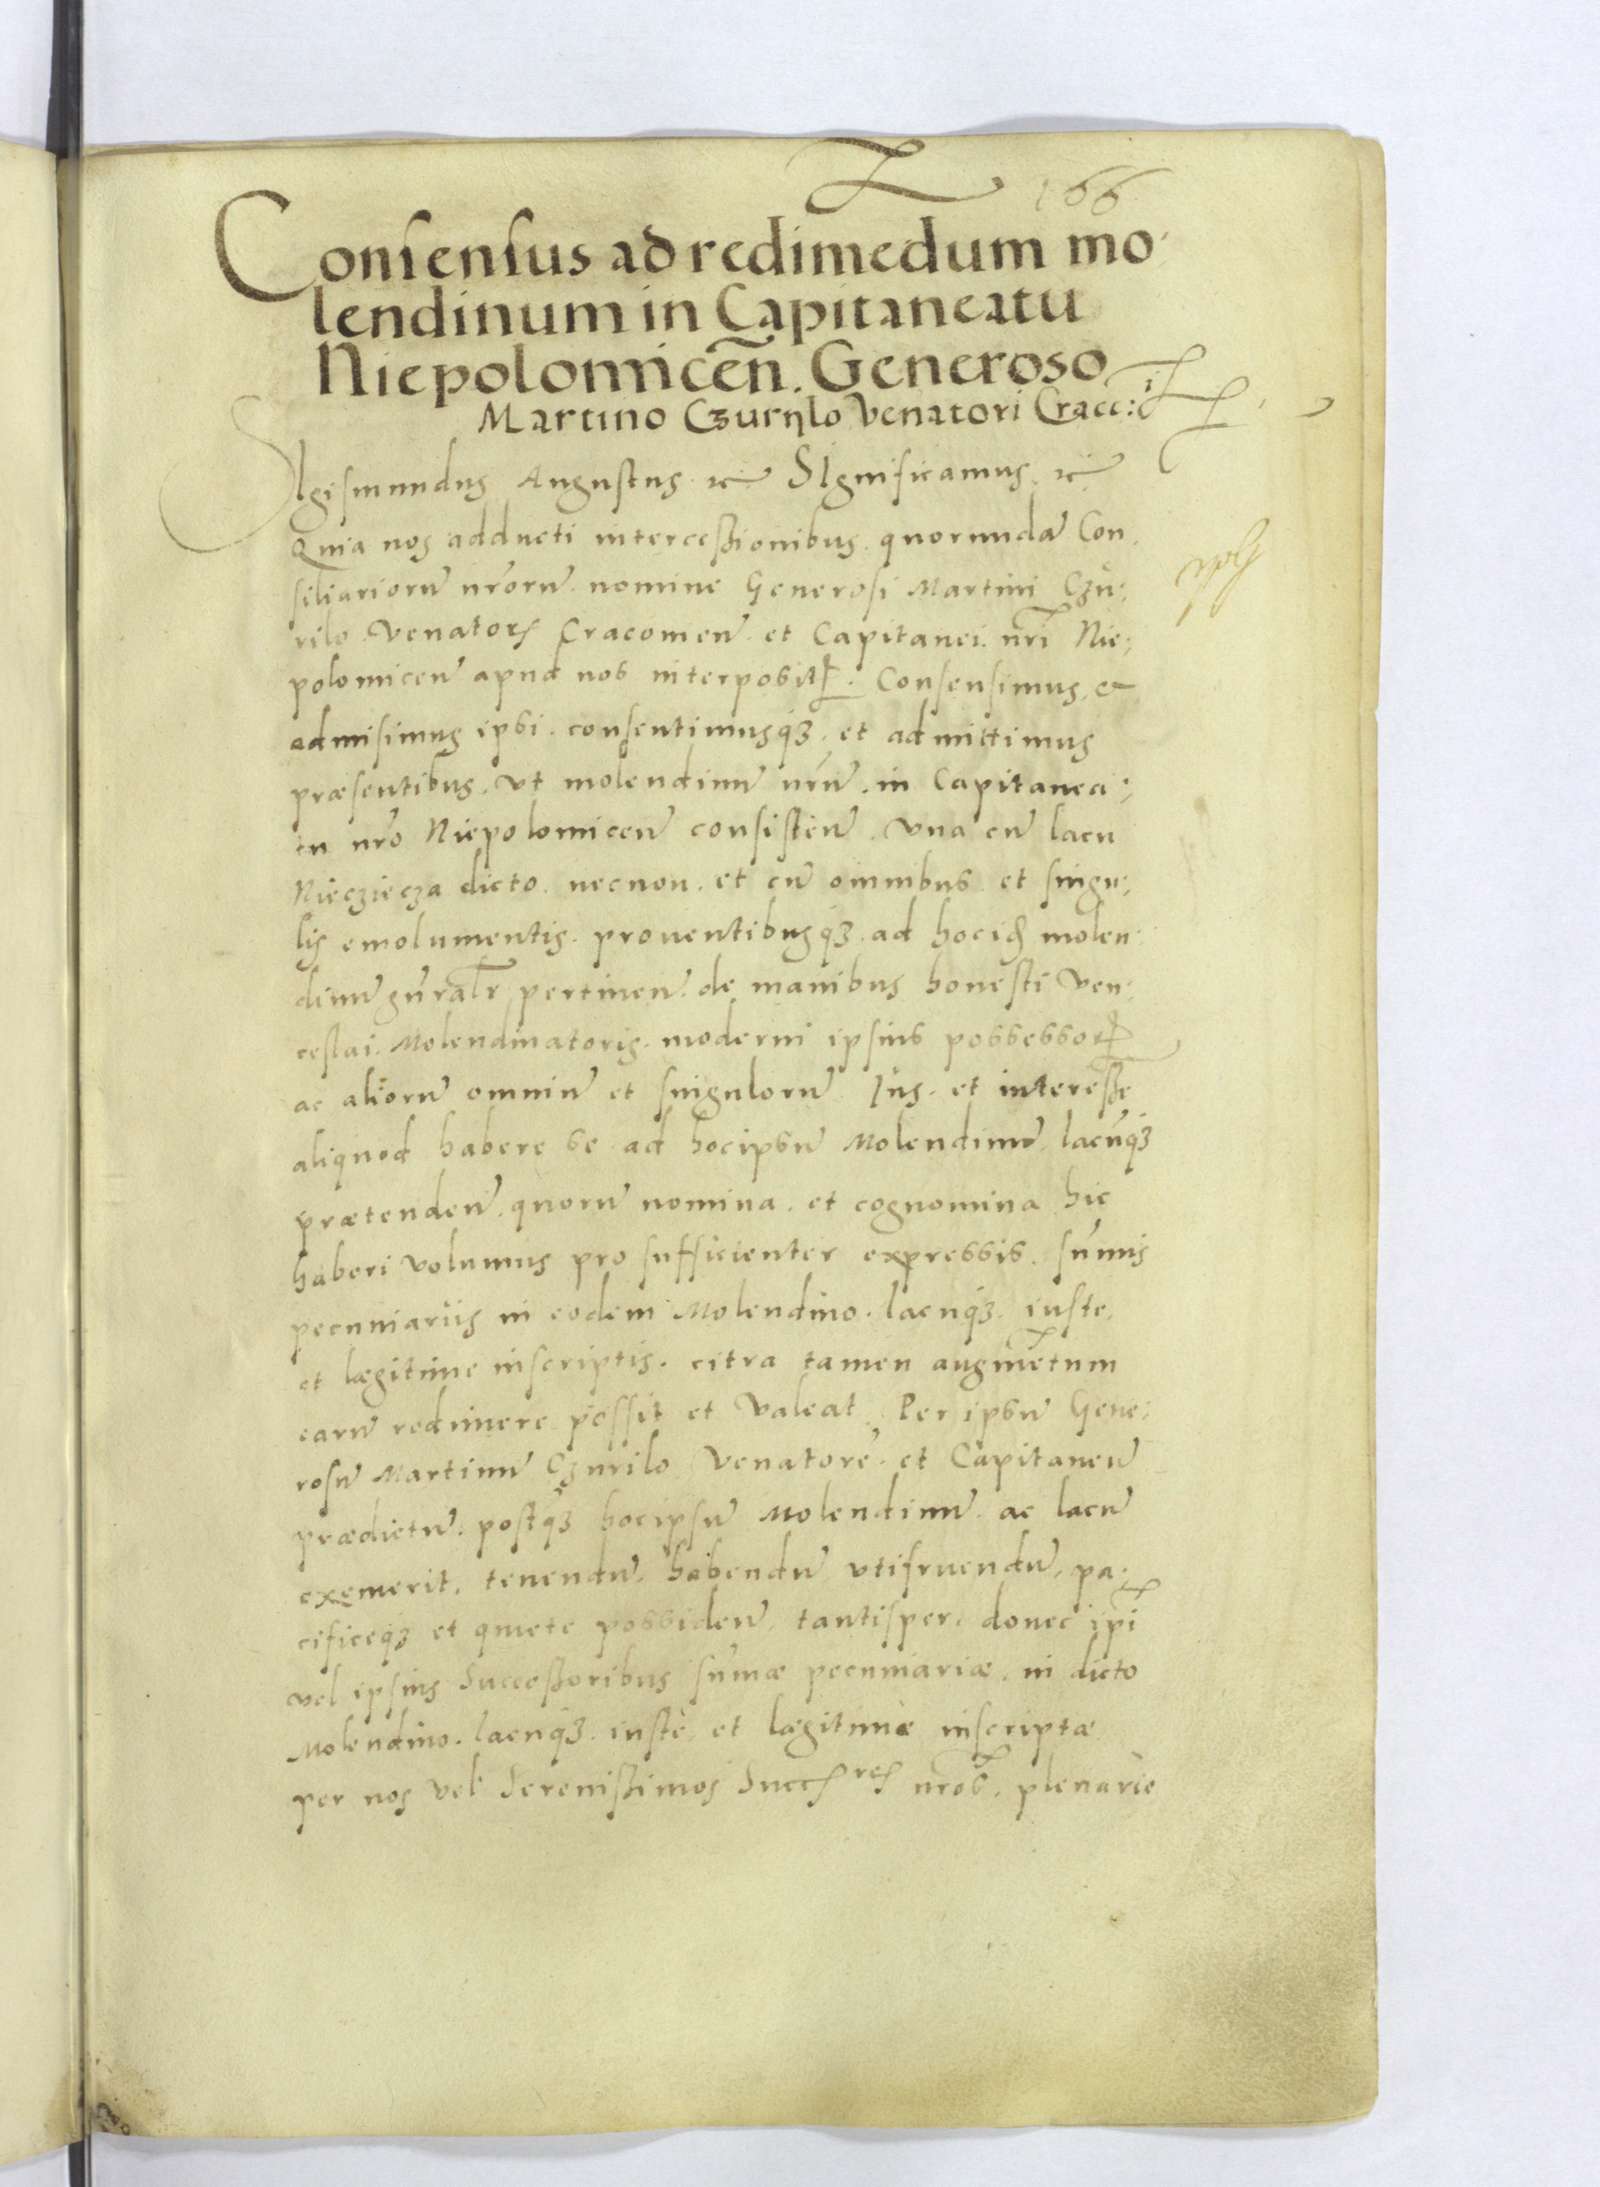 166
Consensus ad redimēdum mo-
lendinum in Capitaneatu
Niepolomicen̄. Generoso
Martino Czurylo Venatori Cracc:
SIgismundus Augustus ꝛc̄ SIgnificamus ꝛc̄
Quia nos adducti intercessionibus quorundā Con-
siliariorū nr̄orū nomine Generosi Martini Czu:
rilo Venatoris Cracovien̄ et Capitanei nr̄i Nie:
polomicen̄ apud nos interpositis. Consensimus et
admisimus ipsi. consentimusq₃ et admittimus
præsentibus. vt molendinū nr̄ū in Capitanea:
tu nr̄o Niepolomicen̄ consisten̄. vna cū lacu
Niecziecza dicto. necnon et cū omnibus et singu:
lis emolumentis. prouentibusq₃ ad hocip̄ molen:
dinū gn̄ralr̄ pertinen̄. de manibus honesti Ven:
ceslai. Molendinatoris. moderni ipsius possessoris
ac aliorū omniū et singulorū Ius et interesse
aliquod habere se ad hocipsū Molendinū lacūq₃
prætenden̄. quorū nomina et cognomina hic
haberi volumus pro sufficienter expressis. sūmis
pecuniariis in eodem Molendino. lacuq₃ iuste
et lægitime inscriptis. citra tamen augmētum
earū redimere possit et valeat Per ipsū Gene:
rosū Martinū Czurilo Venatorē et Capitaneū
prædictū. postq₃ hocipsū Molendinū ac lacū
exemerit. tenendū. habendū vtifruendū. pa:
cificeq₃ et quiete possiden̄. tantisper. donec ip̄i
vel ipsius Successoribus sūmæ pecuniariæ in dicto
Molendino. lacuq₃ iustè et lægitimè inscriptæ
per nos vel Serenissimos Succ̄res nr̄os. plenariè